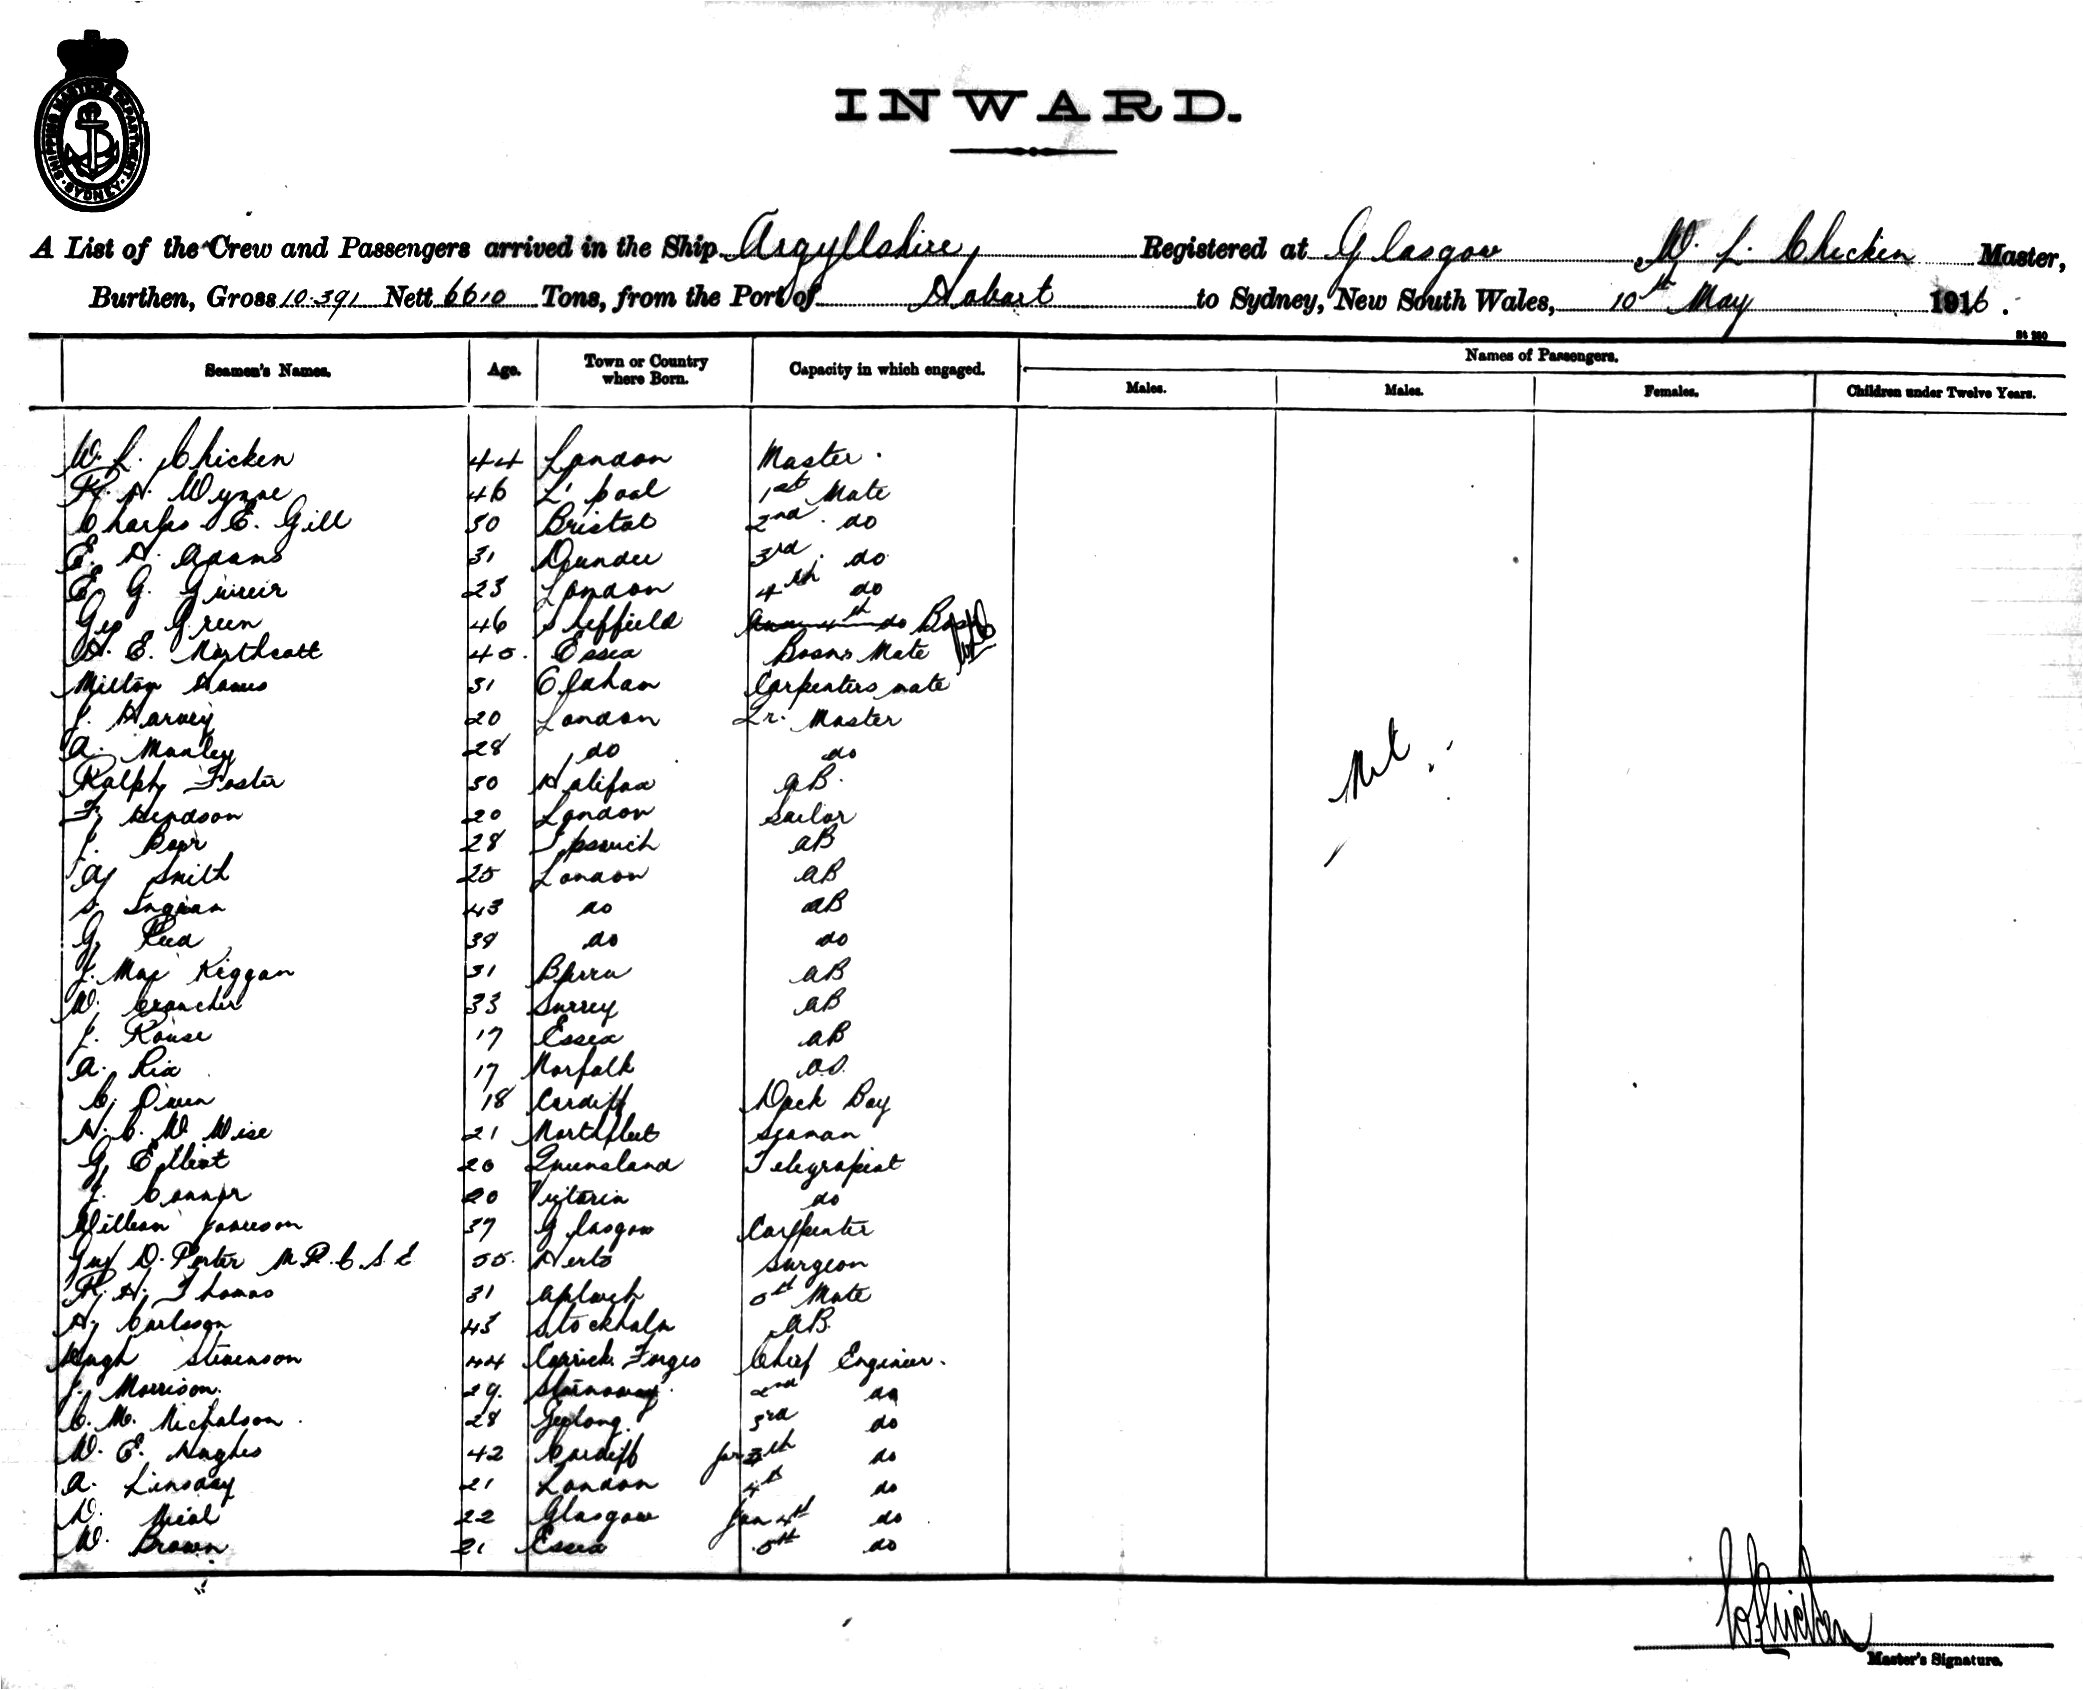 SHIPPING MASTERS DEPARTMENT. SYDNEY
INWARD.
A List of the Crew and Passengers arrived in the Ship Argyllshire Registered at Glasgow W. L. Chicken Master,
Burthen, Gross 10.391 Nett 6610 Tons, from the Port of Hobart to Sydney, New South Wales, 10th May 1916.
Seamen's Names. Age. Town or Country where Born. Capacity in which engaged. Names of Passengers.
Males. Males. Females. Children under Twelve Years.
W. L. Chicken 44 London Master.
R. H. Wynne 46 L'pool 1st Mate
Charles E. Gill 50 Bristol 2nd. do
E. H. Adams 31 Dundee 3rd. do
E G. 23 London 4th do
Geo Green 46 Sheffield
H. E. Northcott 45. Essex Bosns Mate
Milton 31 Carpenters mate
J. Harvey 20 London Qr. Master
A. Manley 28 do do
Ralph Foster 50 Halifax AB.
F. 20 London Sailor
J. 28 Ipswich AB
A Smith 25 London AB
S. 43 do AB
G. Reed do do
J. Mac Kiggan 31 Barra AB
W. Croucher 33 Surrey AB
J. Rouse 17 Essex AB
A. Rix 17 Norfolk
C. Owen 18 Cardiff Deck Boy
H. C. W Wise 21 Northfleet Seaman
G. Elliot 20 Queensland Telegraphist
J. Connor 20 Victoria do
William Jamieson 37 Glasgow Carpenter
Guy D. Porter M R. C. S E 55. Herts Surgeon
R. H. Thomas 31 5th Mate
H. Carlsson 43 Stockholm AB.
Hugh Stevenson 44 Carrick Fergus Chief Engineer.
J. Morrison. 29. Stornoway. 2nd do
C. M. Nicholson. 28 Geelong. 3rd do
W. E. Hughes 42 Cardiff Jnr do
A. Linsday 21 London 4th do
D. 22 Glasgow Jun 4th do
W. Brown 21 Essex 5th do
Nil
W L Chicken
Master's Signature.